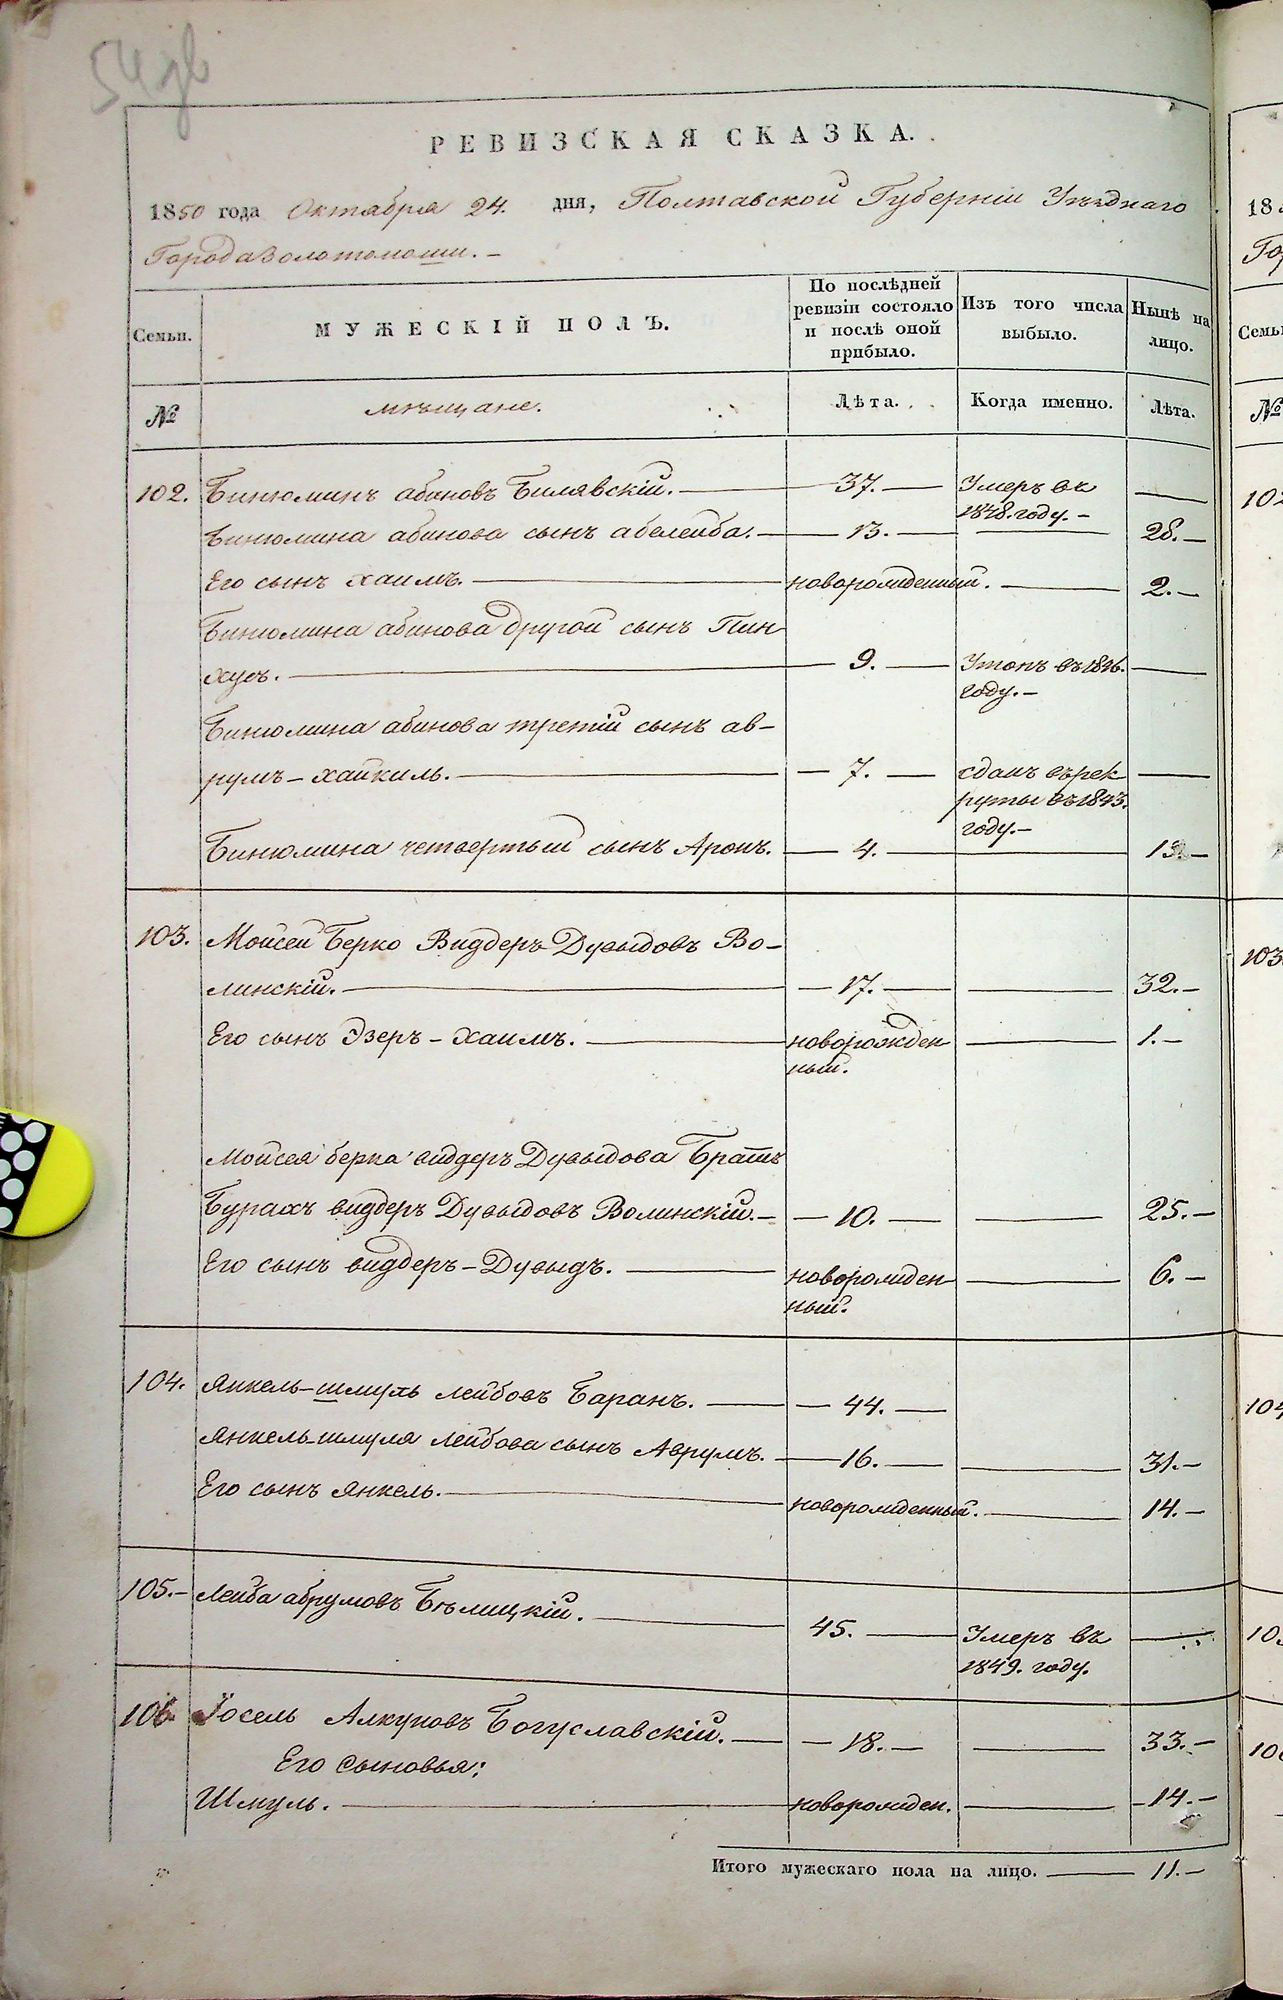 54 об
РЕВИЗСКАЯ СКАЗКА.
1850 года Октября 24. дня, Полтавской Губерніи Уѣзднаго
Города Золотоноши. –
Семьи.
МУЖЕСКІЙ ПОЛЪ.
По послѣдней
ревизіи состояло
и послѣ оной
прибыло.
Изъ того числа
выбыло.
Нынѣ на
лицо.
№
мѣщане.
Лѣта.
Когда именно.
Лѣта.
102. Бинюминъ абиновъ Билявскій. — 37. — Умеръ въ
1848. году. –
Бинюмина абинова сынъ абелейба. — 13. — 28. –
Его сынъ хаимъ. — новорожденный. — 2. –
Бинюмина абинова другой сынъ Пин
хусъ. — 9. — Утопъ въ 1846.
году. –
Бинюмина абинова третій сынъ ав–
румъ – хайкиль. — 7. — сданъ въ рек
руты въ 1843.
году. –
Бинюмина четвертый сынъ Аронъ. — 4. —
103. Мойсей Берко Видберъ Дувыдовъ Во–
линскій. — 17. — 32. –
Его сынъ Эзеръ – хаимъ. — новорожден
ный. — 1. –
Мойсея берка видберъ Дувыдова Братъ
Бурахъ видберъ Дувыдовъ Волинскій. – 10. — 25. –
Его сынъ видберъ – Дувыдъ. — новорожден
ный. — 6. –
104. Янкель–шмуль лейбовъ Баранъ. — 44. —
Янкель–шмуля лейбова сынъ Аврумъ. — 16. — 31. –
Его сынъ янкель. — новорожденный. — 14. –
105. – Лейба абрумовъ Бѣлицкій. — 45. — Умеръ въ
1849. году.
106. Іосель Алкуновъ Богуславскій. — 18. — 33. –
Его сыновья:
Шмуль. — новорожден. — 14. –
Итого мужескаго пола на лицо. — 11. –
18
Го
Семьи
№
102
103
104
10
10